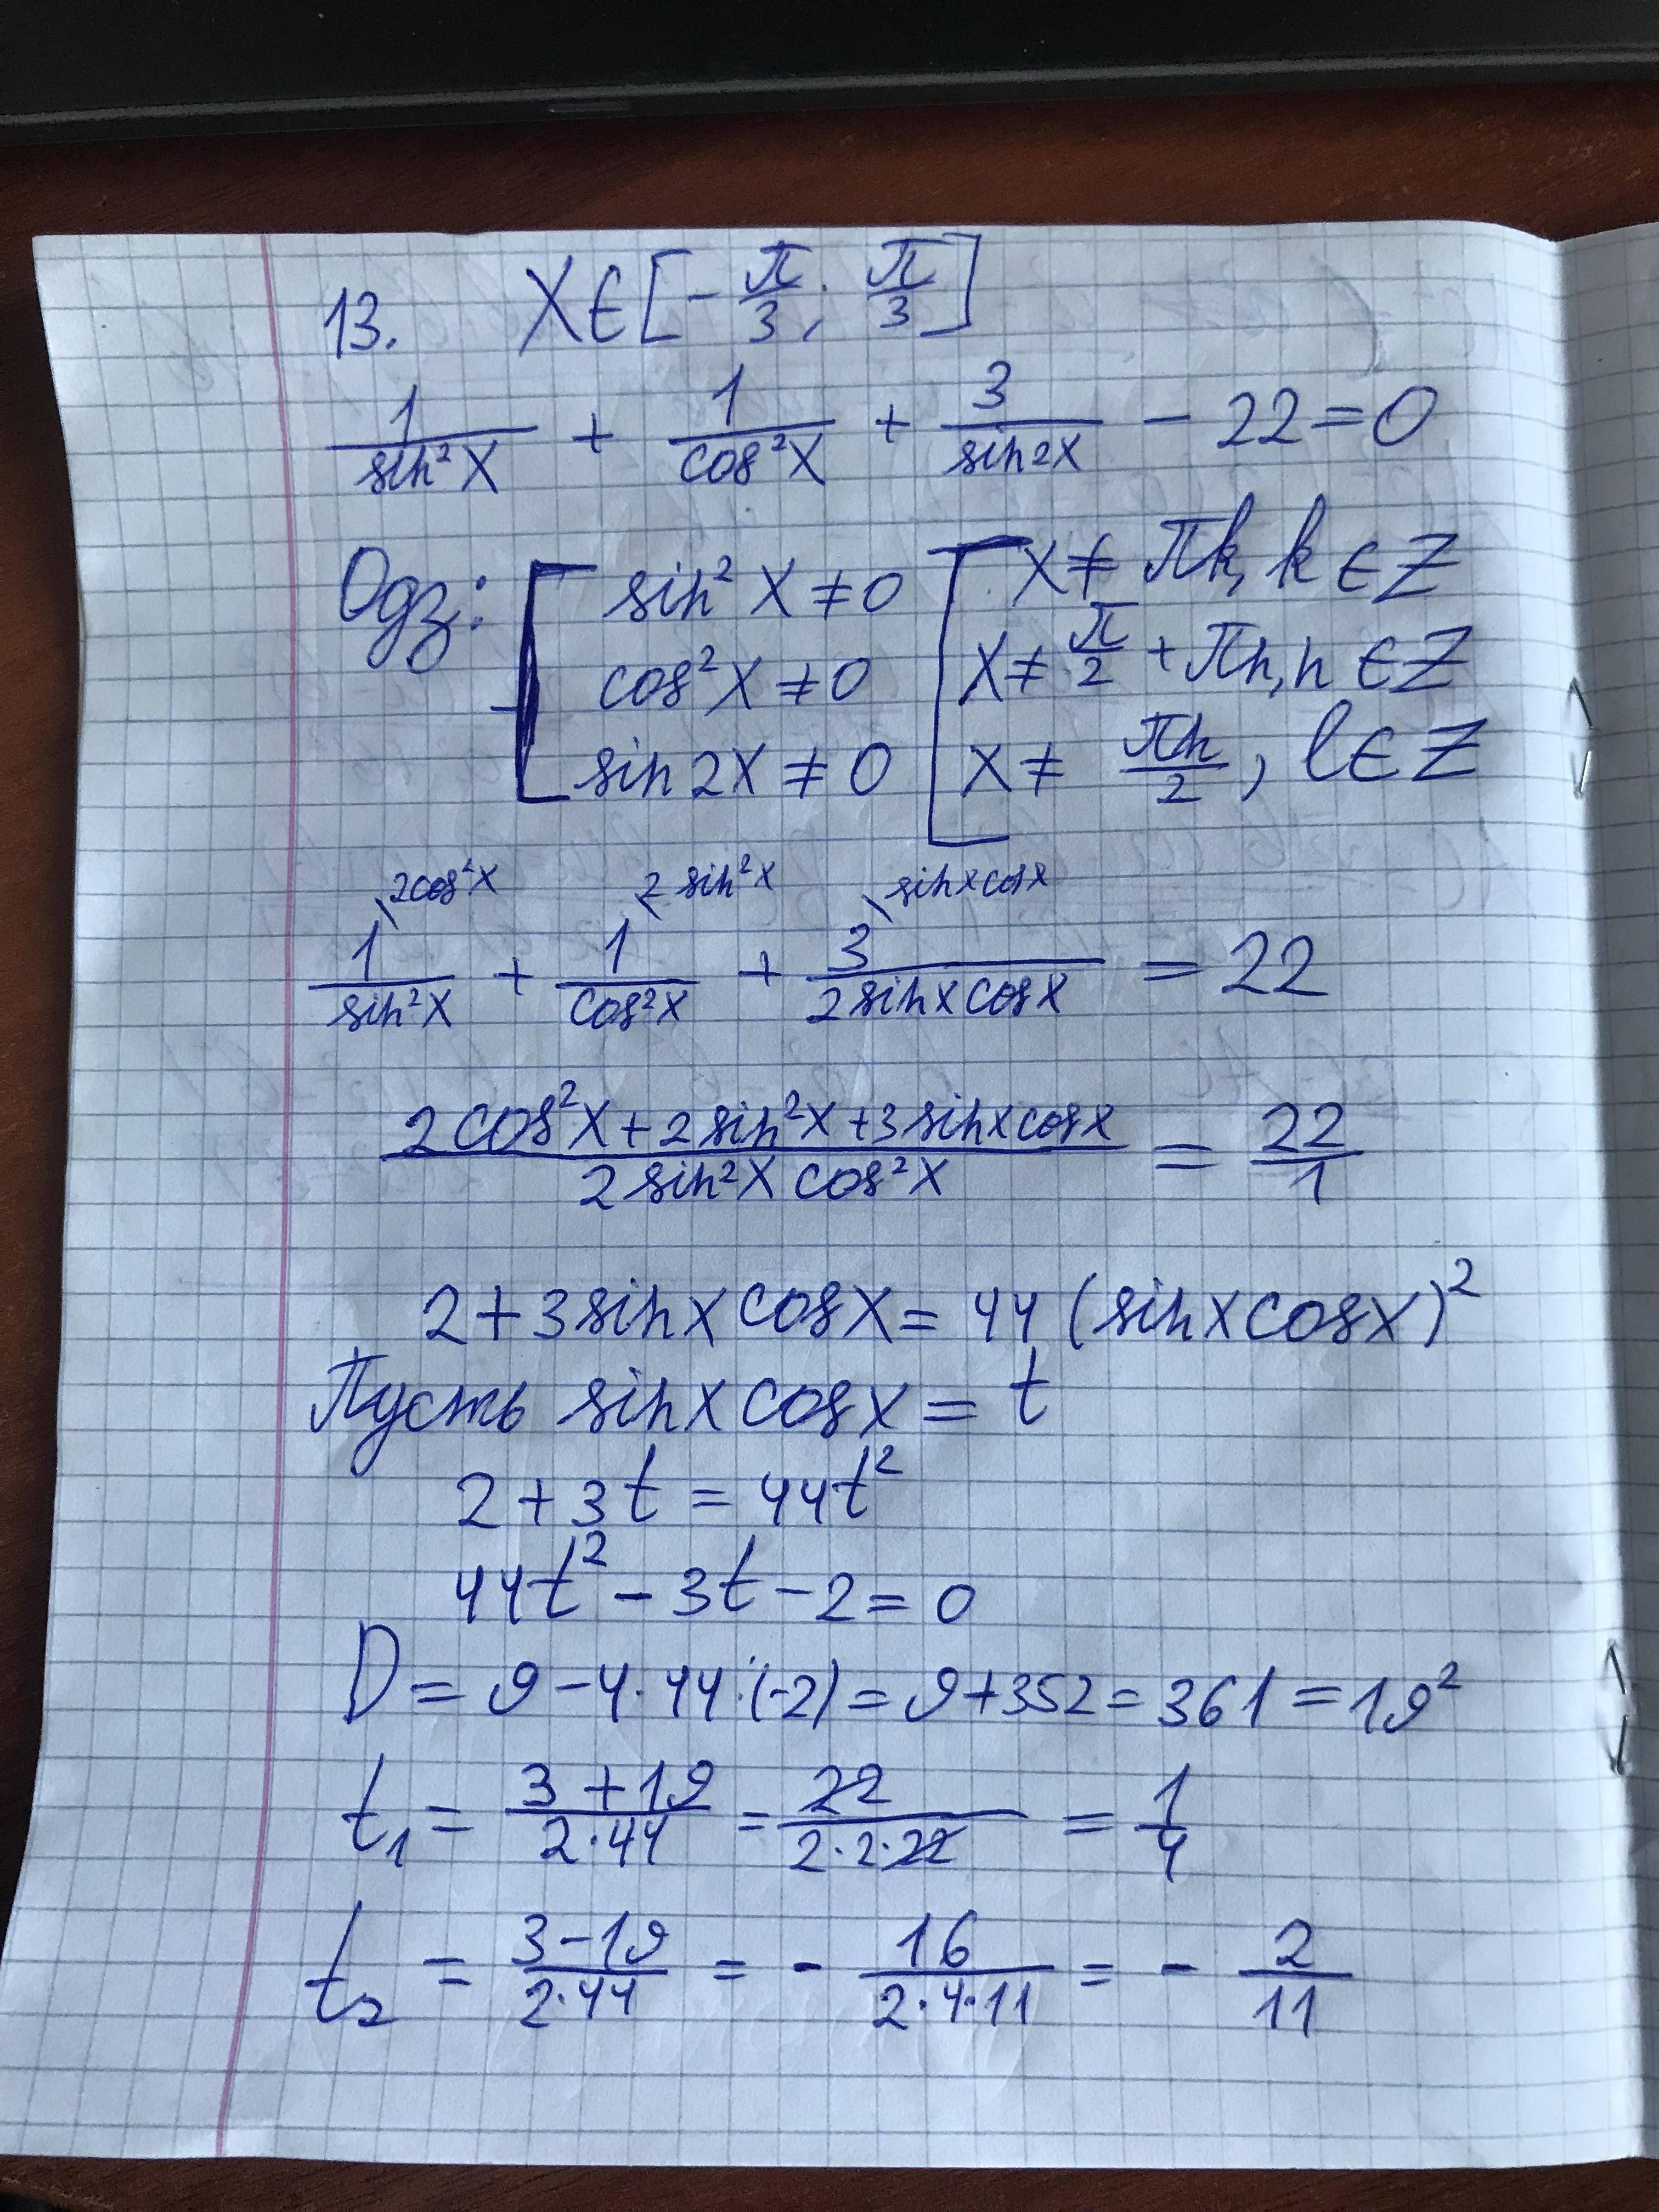 13. X ∈ [-π/3; π/3]
1/sin²X + 1/cos²X + 3/sin2X - 22 = 0
Одз: [ sin²X ≠ 0 [ X ≠ πk, k ∈ Z
cos²X ≠ 0 X ≠ π/2 + πn, n ∈ Z
sin2X ≠ 0 X ≠ πn/2, l ∈ Z
\2cos²X \2sin²X \sinxcosx
1/sin²X + 1/cos²X + 3/2sinxcosx = 22
(2cos²X + 2sin²X + 3sinxcosx)/(2sin²X cos²X) = 22/1
2 + 3sinxcosx = 44(sinxcosx)²
Пусть sinxcosx = t
2 + 3t = 44t²
44t² - 3t - 2 = 0
D = 9 - 4·44·(-2) = 9 + 352 = 361 = 19²
t₁ = (3 + 19)/(2·44) = 22/(2·2·22) = 1/4
t₂ = (3 - 19)/(2·44) = - 16/(2·4·11) = - 2/11